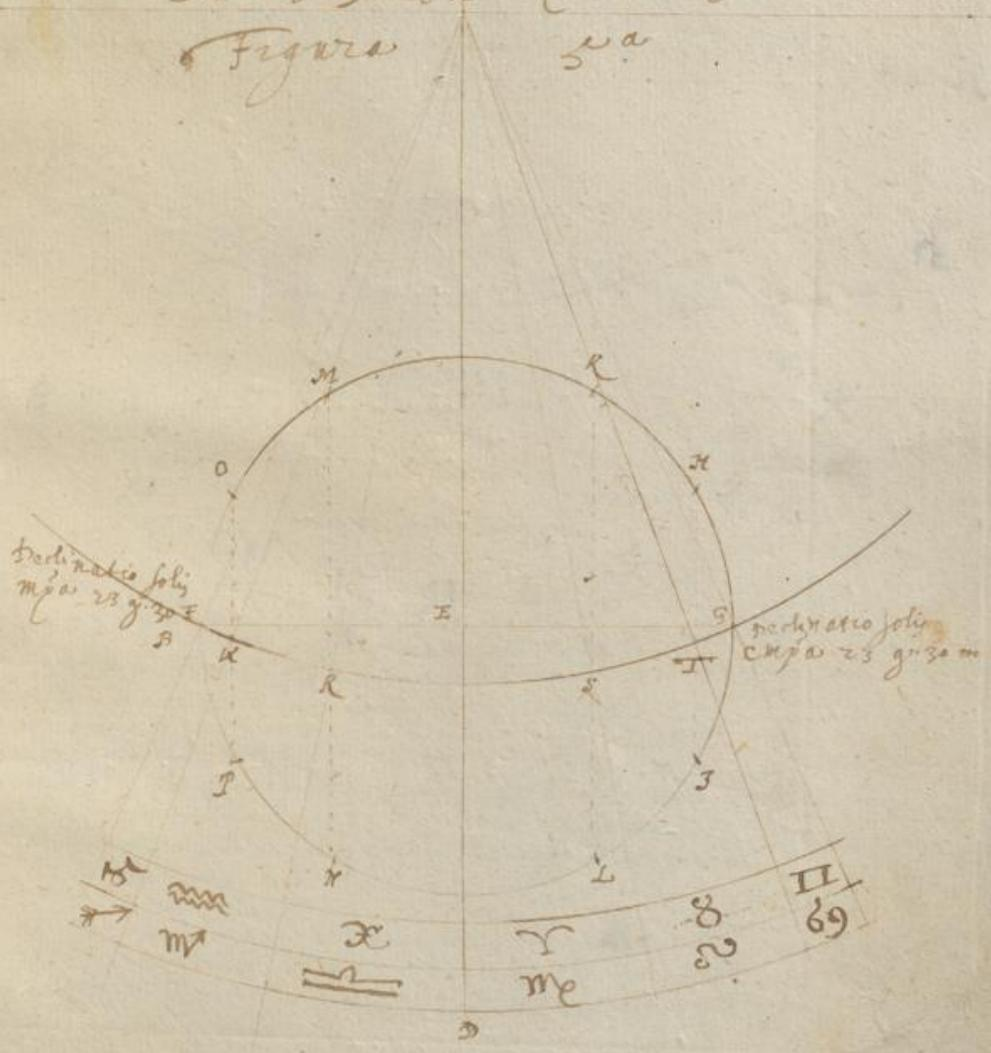 Figura 5ª
M R
O H
Declinatio solis
mpa 23 g. 30 F
B
E G
Declinatio solis
cmpa 23 gr 30 m
K R S I
P I
N L
♑ ♒ ♓ ♈ ♉ ♊
♐ ♏ ♎ ♍ ♌ ♋
D